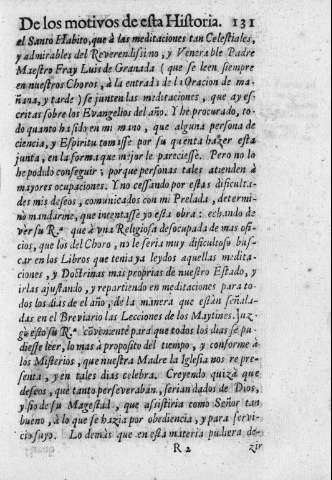 De los motivos de esta Historia. 131
el Santo Habito, que à las meditaciones tan Celestiales,
y admirables del Reverendissimo, y Venerable Padre
Maestro Fray Luis de Granada (que se leen siempre
en nuestros Choros, à la entrada de la Oracion de ma-
ñana, y tarde) se junten las meditaciones, que ay es-
critas sobre los Evangelios del año. Y he procurado, to-
do quanto ha sido en mi mano, que alguna persona de
ciencia, y Espiritu tomasse por su quenta hazer esta
junta, en la forma que mejor le pareciesse. Pero no lo
he podido conseguir; porque personas tales atienden à
mayores ocupaciones. Y no cessando por estas dificulta-
des mis deseos, comunicados con mi Prelada, determi-
nò mandarme, que intentasse yo esta obra: echando de
ver su R.ª que à vna Religiosa desocupada de mas ofi-
cios, que los del Choro, no le seria muy dificultoso bus-
car en los Libros que tenia ya leydos aquellas medita-
ciones, y Doctrinas mas proprias de nuestro Estado, y
irlas ajustando, y repartiendo en meditaciones para to-
dos los dias de el año, de la manera que estàn señala-
das en el Breviario las Lecciones de los Maytines. Juz-
gò esto su R.ª cõveniente para que todos los dias se pu-
diesse leer, lo mas à proposito del tiempo, y conforme à
los Misterios, que nuestra Madre la Iglesia nos repre-
senta, y en tales dias celebra. Creyendo quizà que
deseos, que tanto perseveraban, serian dados de Dios,
y fiò de su Magestad, que assistiria como Señor tan
bueno, à lo que se hazia por obediencia, y para servi-
cio suyo. Lo demàs que en esta materia pudiera de-
R 2 zir